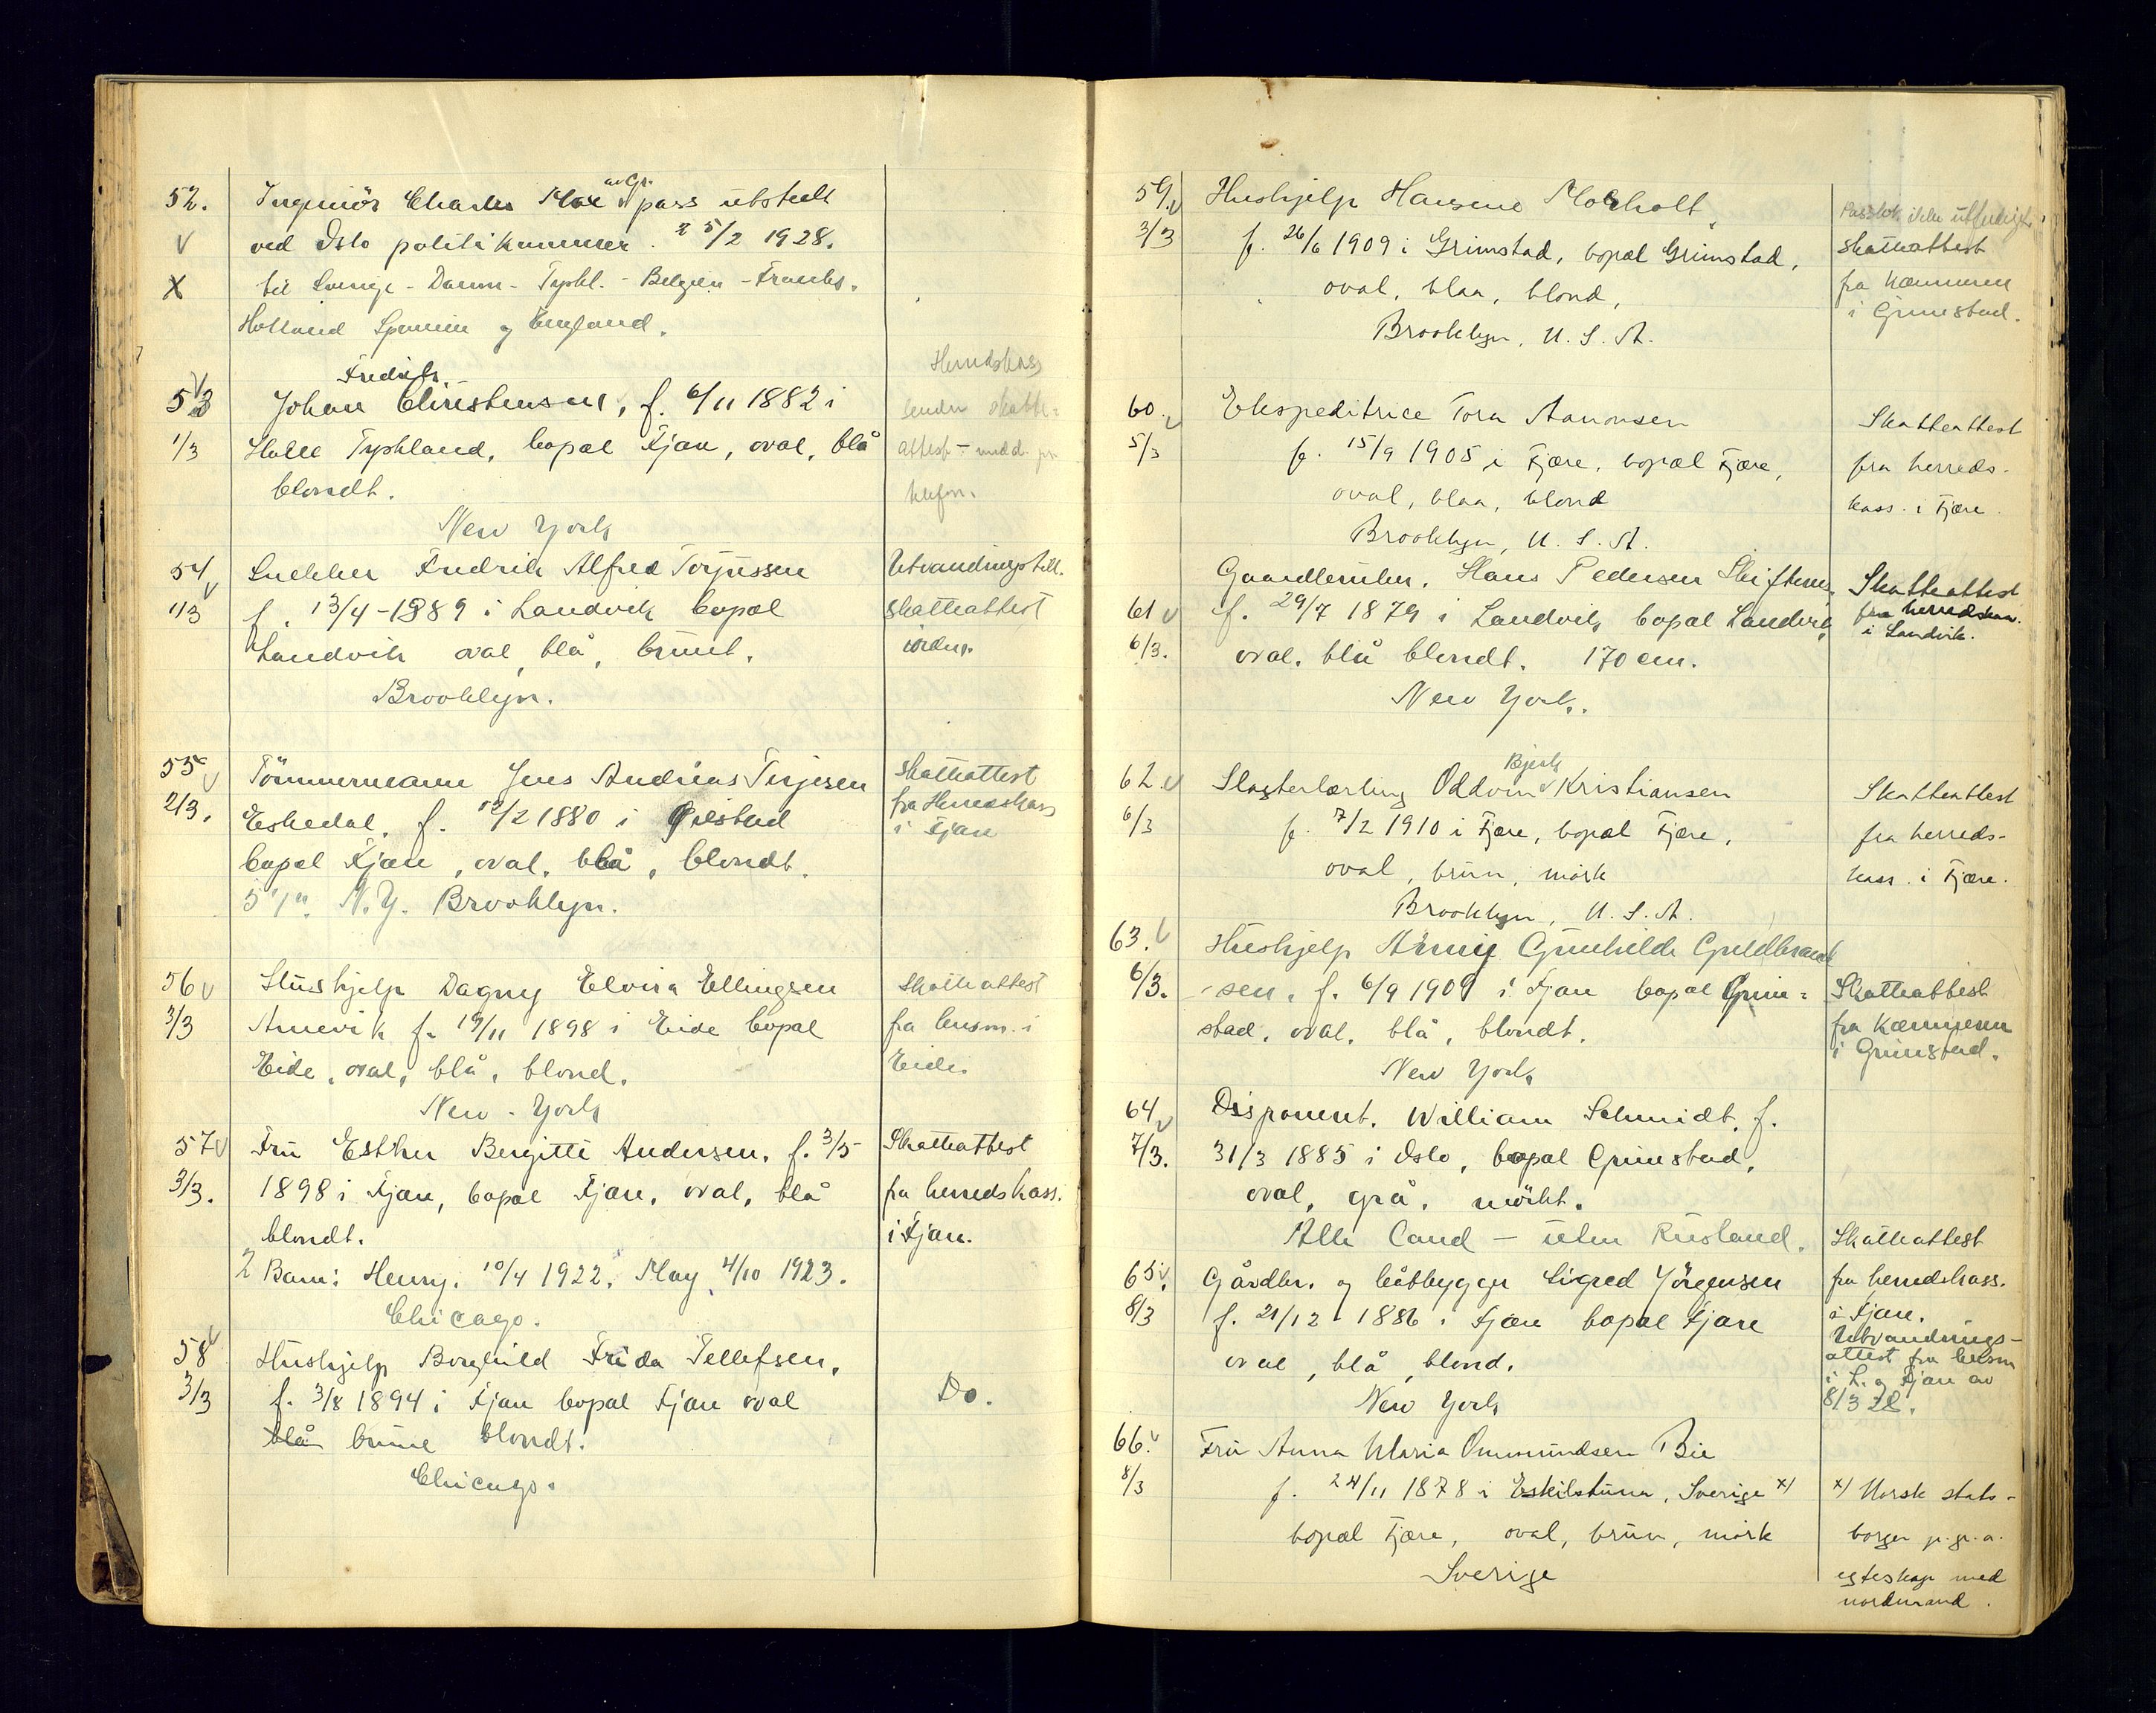 52. Ingeniör Charles Moe av Gr. pass utstedt
ved Oslo politikammer. 25/2 1928.
X til Sverige - Danm - Tyskl. - Belgien - Frankr.
Holland Spanien og England.
53 Johan Fredrik Christensen, f. 6/11 1882 i
1/3 Halle Tyskland, bopæl Fjære, oval, blå
blondt.
New York
Herredskass
sender skatte-
attest - medd. pr.
telefon.
54 Snekker Fredrik Alfred Terjussen
1/3 f. 13/4 - 1889 i Landvik bopæl
Landvik oval, blå, brunt.
Brooklyn.
Utvandringstill.
skatteattest
iorden.
55 Tömmermann Jens Andreas Terjesen
2/3. Eskedal, f. 12/2 1880 i Øiestad
bopæl Fjære, oval, blå, blondt.
5'7". N.Y. Brooklyn.
skatteattest
fra Herredskass
i Fjære
56 Hushjelp Dagny Elvira Ellingsen
3/3 Amevik f. 19/11 1898 i Eide bopæl
Eide, oval, blå, blond.
New-York
Skatteattest
fra lensm. i
Eide.
57 Fru Esther Bergitte Andersen, f. 3/5
3/3. 1898 i Fjære, bopæl Fjære, oval, blå
blondt.
2 Barn: Henry. 10/4 1922, May 4/10 1923.
Chicago.
Skatteattest
fra herredskass.
i Fjære.
58 Hushjelp Borghild Frida Tellefsen,
3/3 f. 3/8 1894 i Fjære bopæl Fjære oval
blå brune blondt.
Chicago.
Do.
59. Hushjelp Hansine Morholt,
3/3 f. 26/6 1909 i Grimstad, bopæl Grimstad,
oval, blaa, blond,
Brooklyn, U.S.A.
Passbok ikke utferdiget
skatteattest
fra Kæmneren
i Grimstad.
60. Ekspeditrice Tora Aanonsen
5/3 f. 15/9 1905 i Fjære, bopæl Fjære,
oval, blaa, blond
Brooklyn, U.S.A.
Skatteattest
fra herreds-
kass. i Fjære.
Gaardbruker, Hans Pedersen Skiftenes,
61 f. 29/7 1879 i Landvik bopæl Landvik
6/3. oval, blå blondt. 170 cm.
New York.
Skatteattest
fra herredskass.
i Landvik.
62. Slagterlærling Oddvin Bjerk Kristiansen
6/3 f. 7/2 1910 i Fjære, bopæl Fjære,
oval, brun, mørk
Brooklyn, U.S.A.
Skatteattest
fra herreds-
kass. i Fjære.
63. Hushjelp Gunhilde Guldbrand
6/3. -sen, f. 6/9 1909 i Fjære bopæl Grim-
stad, oval, blå, blondt.
New York
Skatteattest
fra Kæmneren
i Grimstad.
64 Disponent. William Schmidt, f.
7/3. 31/3 1885 i Oslo, bopæl Grimstad,
oval, grå, mörkt.
Alle Land - uten Rusland.
65. Gårdbr. og båtbygger Sigred Jörgensen
8/3 f. 21/12 1886 i Fjære bopæl Fjære
oval, blå, blond.
New York
Skatteattest
fra herredskass.
i Fjære.
Utvandrings-
attest fra lensm
i L. og Fjære av
8/3 28.
66. Fru Anna Maria Ommundsen Bie
8/3 f. 24/11 1878 i Eskilstuna, Sverige x)
bopæl Fjære, oval, brun, mørk
Sverige
x) Norsk stats-
borger p. gr. a.
egteskap med
nordmand.